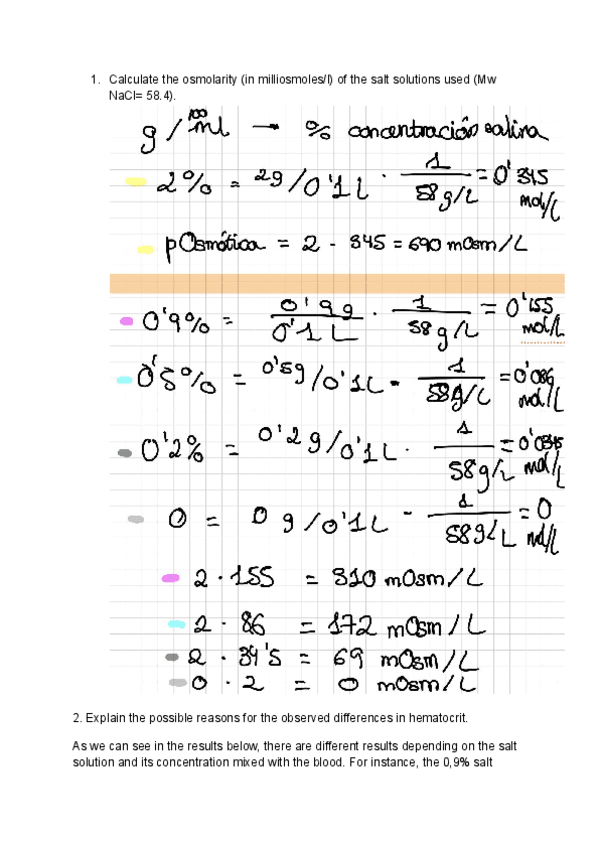 1. Calculate the osmolarity (in milliosmoles/l) of the salt solutions used (Mw
NaCl= 58.4).
g / 100 ml → % concentración salina
2% = 2g/0'1 L · 1 / 58 g/L = 0'345 mol/L
pOsmótica = 2 · 345 = 690 mOsm/L
0'9% = 0'9g / 0'1 L · 1 / 58 g/L = 0'155 mol/L
0'5% = 0'5g/0'1L · 1 / 58g/L = 0'086 mol/L
0'2% = 0'2g/0'1L · 1 / 58g/L = 0'0345 mol/L
0 = 0 g/0'1L · 1 / 58g/L = 0 mol/L
2 · 155 = 310 mOsm/L
2 · 86 = 172 mOsm/L
2 · 34'5 = 69 mOsm/L
0 · 2 = 0 mOsm/L
2. Explain the possible reasons for the observed differences in hematocrit.
As we can see in the results below, there are different results depending on the salt
solution and its concentration mixed with the blood. For instance, the 0,9% salt